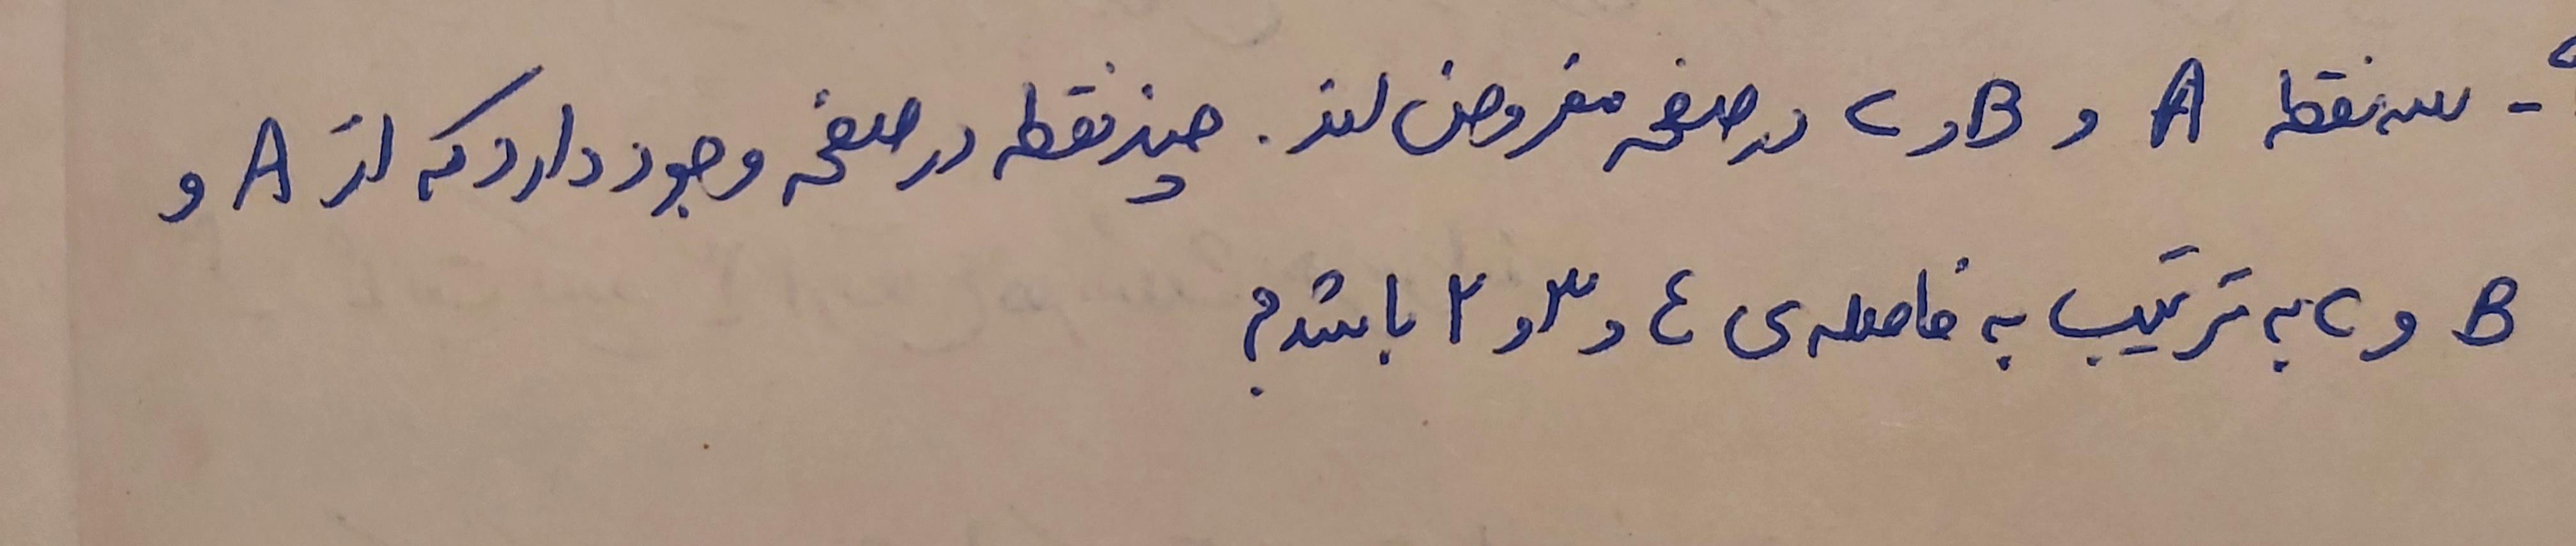 - سه نقطه A و B و C در صفحه مفروض اند. چند نقطه در صفحه وجود دارد که از A و
B و C به ترتیب به فاصله ی ٤ و ۳ و ۲ باشد؟